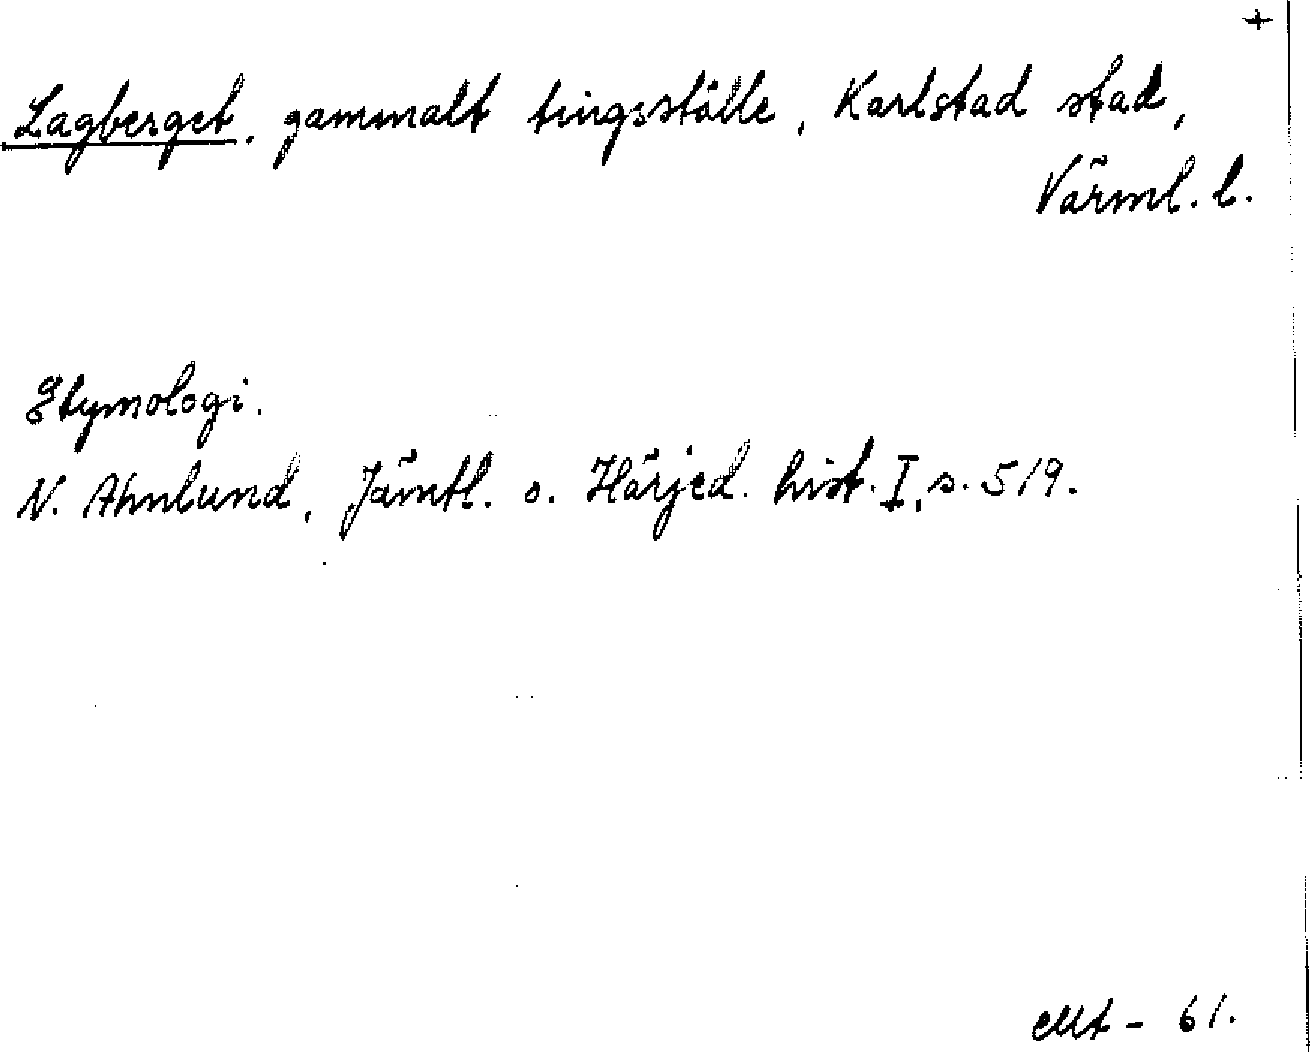 +
Lagberget, gammalt tingsställe, Karlstad stad,
Värml. l.
Etymologi.
N. Ahnlund, Jämtl. o. Härjed. hist. I, s. 519.
- 61.